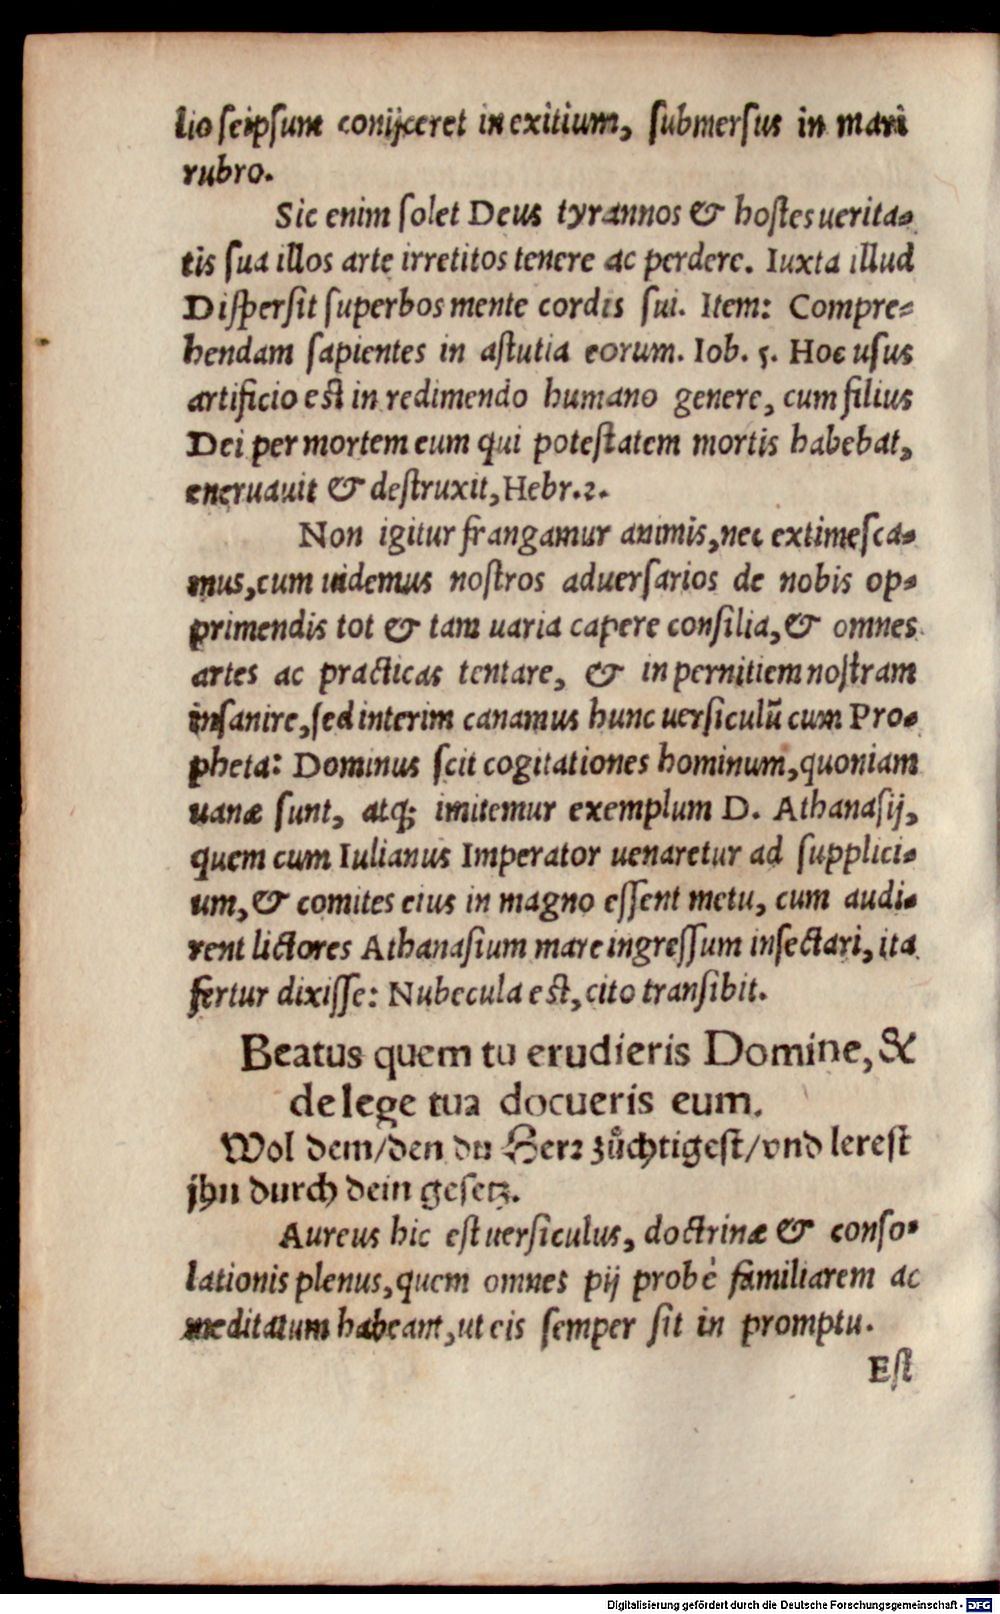 lio seipsum conijceret in exitium, submersus in mari
rubro.
Sic enim solet Deus tyrannos & hostes uerita-
tis sua illos arte irretitos tenere ac perdere. Iuxta illud
Dispersit superbos mente cordis sui. Item: Compre-
hendam sapientes in astutia eorum. Iob. 5. Hoc usus
artificio est in redimendo humano genere, cum filius
Dei per mortem eum qui potestatem mortis habebat,
eneruauit & destruxit, Hebr. 2.
Non igitur frangamur animis, nec extimesca-
mus, cum uidemus nostros aduersarios de nobis op-
primendis tot & tam uaria capere consilia, & omnes
artes ac practicas tentare, & in pernitiem nostram
insanire, sed interim canamus hunc uersiculũ cum Pro-
pheta: Dominus scit cogitationes hominum, quoniam
uanæ sunt, atq; imitemur exemplum D. Athanasij,
quem cum Iulianus Imperator uenaretur ad supplici-
um, & comites eius in magno essent metu, cum audi-
rent lictores Athanasium mare ingressum insectari, ita
fertur dixisse: Nubecula est, cito transibit.
Beatus quem tu erudieris Domine, &
de lege tua docueris eum.
Wol dem/den du Herz zůchtigest/vnd lerest
jhn durch dein gesetz.
Aureus hic est uersiculus, doctrinæ & conso-
lationis plenus, quem omnes pij probè familiarem ac
meditatum habeant, ut eis semper sit in promptu.
Est
Digitalisierung gefördert durch die Deutsche Forschungsgemeinschaft - DFG